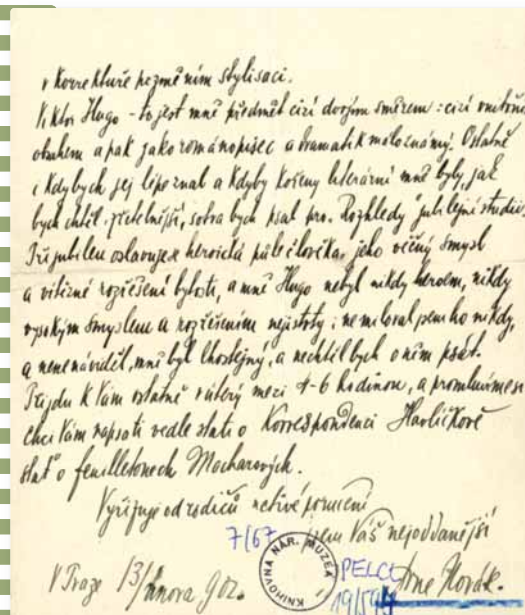 v korrektuře pozměním stylisaci.
Viktor Hugo - to jest mně předmět cizí dvojím směrem: cizí vnitřním
obsahem a pak jako románopisec a dramatik málo známý. Ostatně
i kdybych jej lépe znal a kdyby kořeny literární mně byly, jak
bych chtěl, zřetelnější, sotva bych psal pro „Rozhledy" jubilejní studii.
Při jubileu oslavuje se heroická půle člověka, jeho věčný smysl
a vítězné rozřešení bytosti, a mně Hugo nebyl nikdy heroem, nikdy
vysokým smyslem a rozřešením nejistoty; nemiloval jsem ho nikdy,
a nenenáviděl, mně byl lhostejný, a nechtěl bych o něm psát.
Přijdu k Vám ostatně v úterý mezi 4-6 hodinou, a promluvíme si
Chci Vám napsati vedle stati o Korrespondenci Havlíčkově
stať o feuilletonech Macharových.
Vyřizuje od rodičů uctivé poručení
jsem Váš nejoddanější
Arne Novák.
V Praze 13/února 902.
7/67
KNIHOVNA NÁR. MUZEA
PELCL